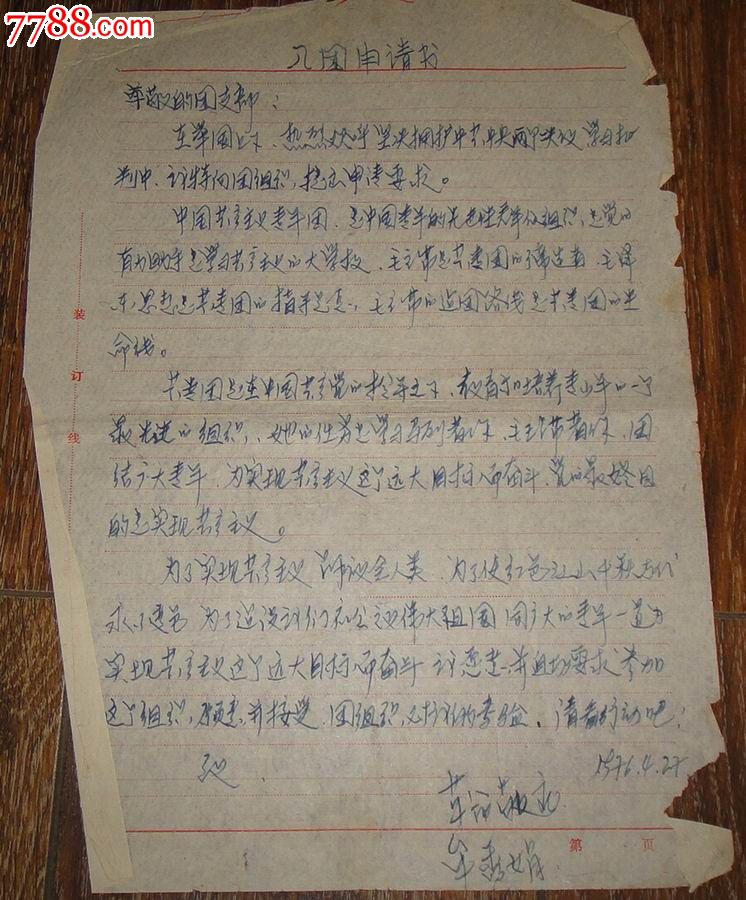 7788.com
入团申请书
尊敬的团支部：
在举国上下、热烈欢呼坚决拥护中共中央两个决议学习批
判中、我特向团组织，提出申请要求。
中国共产主义青年团，是中国青年的先进性青年组织，是党的
有力助手是学习共产主义的大学校、毛主席是共青团的缔造者、毛泽
东思想是共青团的指导思想，毛主席的建团路线是共青团的生
命线。
共青团是在中国共产党的领导之下、教育和培养青少年的一个
最先进的组织，她的任务是学习马列著作、毛主席著作、团
结广大青年、为实现共产主义这个远大目标而奋斗、党的最终目
的是实现共产主义。
为了实现共产主义解放全人类、为了使红色江山千秋万代
永不变色 为了建设我们伟大祖国 同广大的青年一道为
实现共产主义这个远大目标而奋斗 我愿意并且切要求参加
这个组织，愿意并接受、团组织对我的考验。请看行动吧！
致
1976.4.27
革命敬礼
牟秀娟
装
订
线
第 页